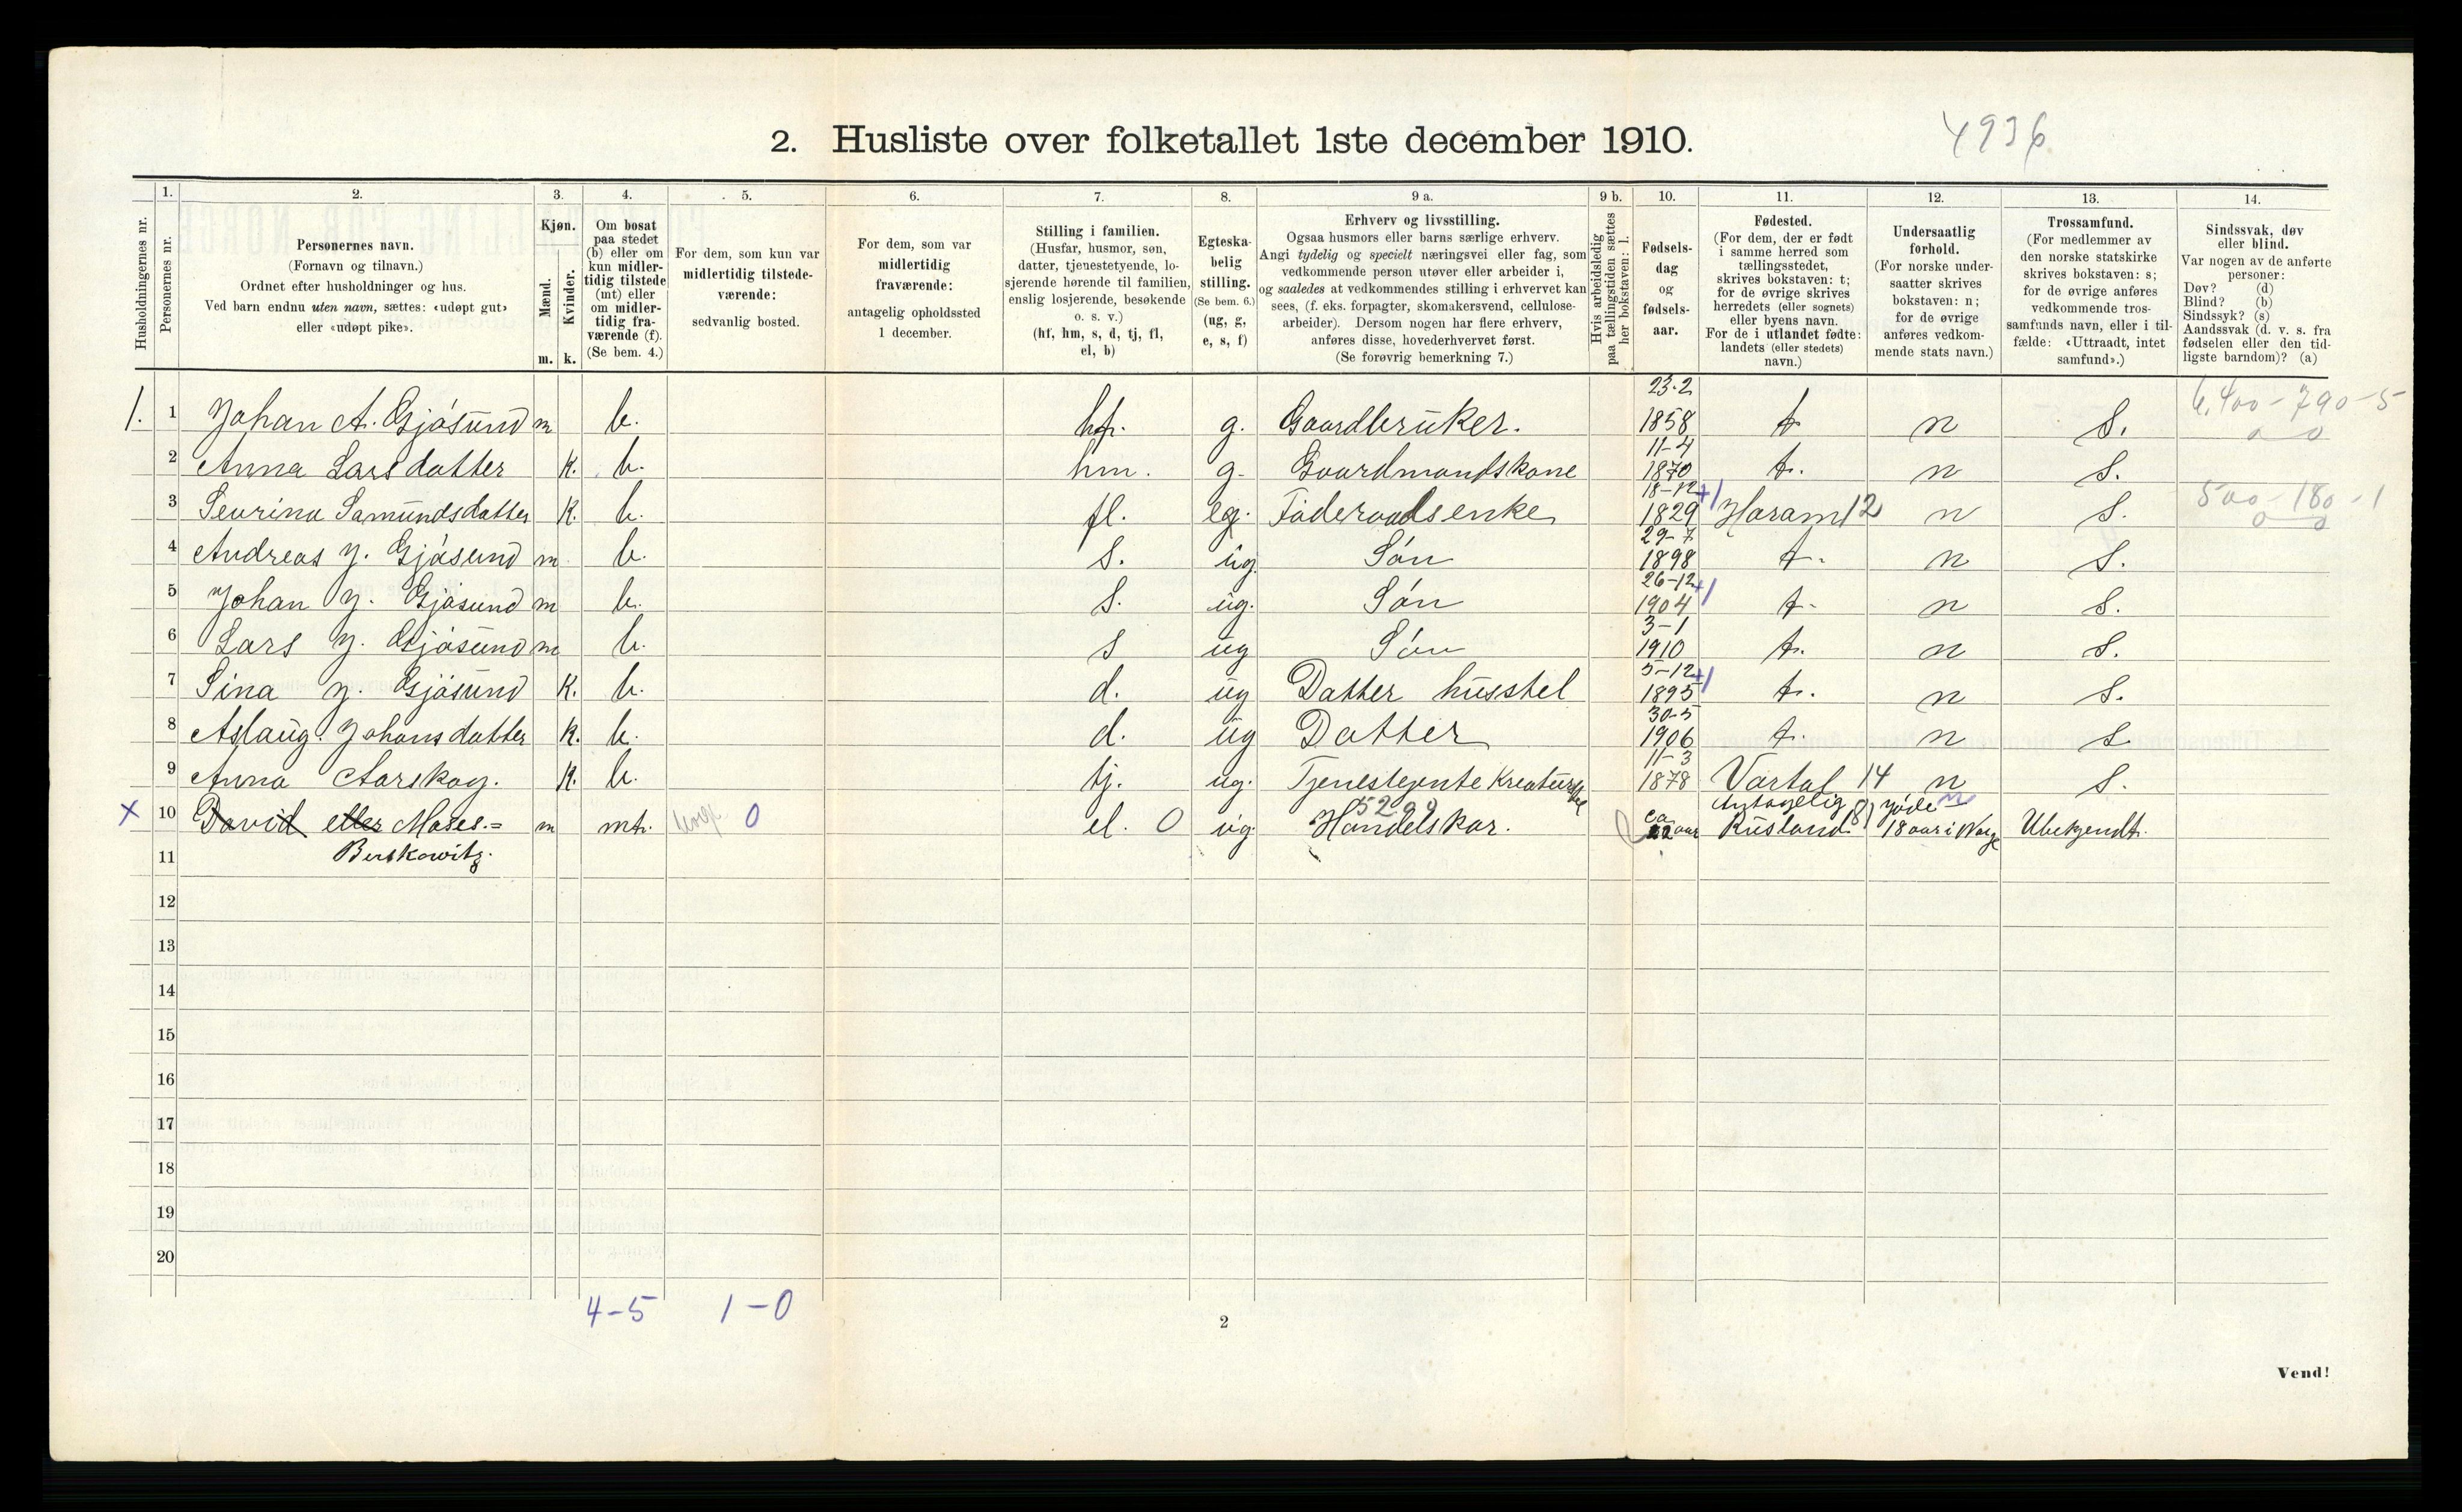 2. Husliste over folketallet 1ste december 1910.
4936
Husholdningernes nr.
1. Personernes nr.
2. Personernes navn.
(Fornavn og tilnavn.)
Ordnet efter husholdninger og hus.
Ved barn endnu uten navn, sættes: «udøpt gut»
eller «udøpt pike».
3. Kjøn.
Mænd. m.
Kvinder. k.
4. Om bosat
paa stedet
(b) eller om
kun midler-
tidig tilstede
(mt) eller
om midler-
tidig fra-
værende (f).
(Se bem. 4.)
5. For dem, som kun var
midlertidig tilstede-
værende:
sedvanlig bosted.
6. For dem, som var
midlertidig
fraværende:
antagelig opholdssted
1 december.
7. Stilling i familien.
(Husfar, husmor, søn,
datter, tjenestetyende, lo-
sjerende hørende til familien,
enslig losjerende, besøkende
o. s. v.)
(hf, hm, s, d, tj, fl,
el, b)
8. Egteska-
belig
stilling.
(Se bem. 6.)
(ug, g,
e, s, f)
9 a. Erhverv og livsstilling.
Ogsaa husmors eller barns særlige erhverv.
Angi tydelig og specielt næringsvei eller fag, som
vedkommende person utøver eller arbeider i,
og saaledes at vedkommendes stilling i erhvervet kan
sees, (f. eks. forpagter, skomakersvend, cellulose-
arbeider). Dersom nogen har flere erhverv,
anføres disse, hovederhvervet først.
(Se forøvrig bemerkning 7.)
9 b. Hvis arbeidsledig
paa tællingstiden sættes
her bokstaven: l.
10. Fødsels-
dag
og
fødsels-
aar.
11. Fødested.
(For dem, der er født
i samme herred som
tællingsstedet,
skrives bokstaven: t;
for de øvrige skrives
herredets (eller sognets)
eller byens navn.
For de i utlandet fødte:
landets (eller stedets)
navn.)
12. Undersaatlig
forhold.
(For norske under-
saatter skrives
bokstaven: n;
for de øvrige
anføres vedkom-
mende stats navn.)
13. Trossamfund.
(For medlemmer av
den norske statskirke
skrives bokstaven: s;
for de øvrige anføres
vedkommende tros-
samfunds navn, eller i til-
fælde: «Uttraadt, intet
samfund».)
14. Sindssvak, døv
eller blind.
Var nogen av de anførte
personer:
Døv? (d)
Blind? (b)
Sindssyk? (s)
Aandssvak (d. v. s. fra
fødselen eller den tid-
ligste barndom)? (a)
1. 1 Johan A. Gjøsund m b. hf. g. Gaardbruker. 23-2 1858 t n S. 6.400-790-5 0 0
2 Anna Larsdatter K. b. hm. g. Gaardmandskone 11-4 1870 t. n S.
3 Sevrina Samundsdatter K. b. fl. eg. Føderaadsenke 18-12 1829 +1 Haram 12 n S. 500-180-1 0 0
4 Andreas J. Gjøsund m b. S. ug. Søn 29-7 1898 t. n S.
5 Johan J. Gjøsund m b. S. ug. Søn 26-12 1904 +1 t. n S.
6 Lars J. Gjøsund m b. S ug Søn 3-1 1910 t. n S.
7 Sina J. Gjøsund K. b. d. ug Datter husstel 5-12 1895 +1 t. n S.
8 Aslaug Johansdatter K. b. d. ug Datter 30-5 1906 t. n S
9 Anna Aarskog. K. b. tj. ug. Tjenestejente Kreaturstel 11-3 1878 Vartal 14 n S.
X 10 David eller Moses.= m mt. 0 el. 0 ug. 5299 Handelskar. ca 22 aar Antagelig Rusland 8) Jøde n 18 aar i Norge Ubekjendt.
11 Berskowitz.
12
13
14
15
16
17
18
19
20
4-5 1-0
2
Vend!